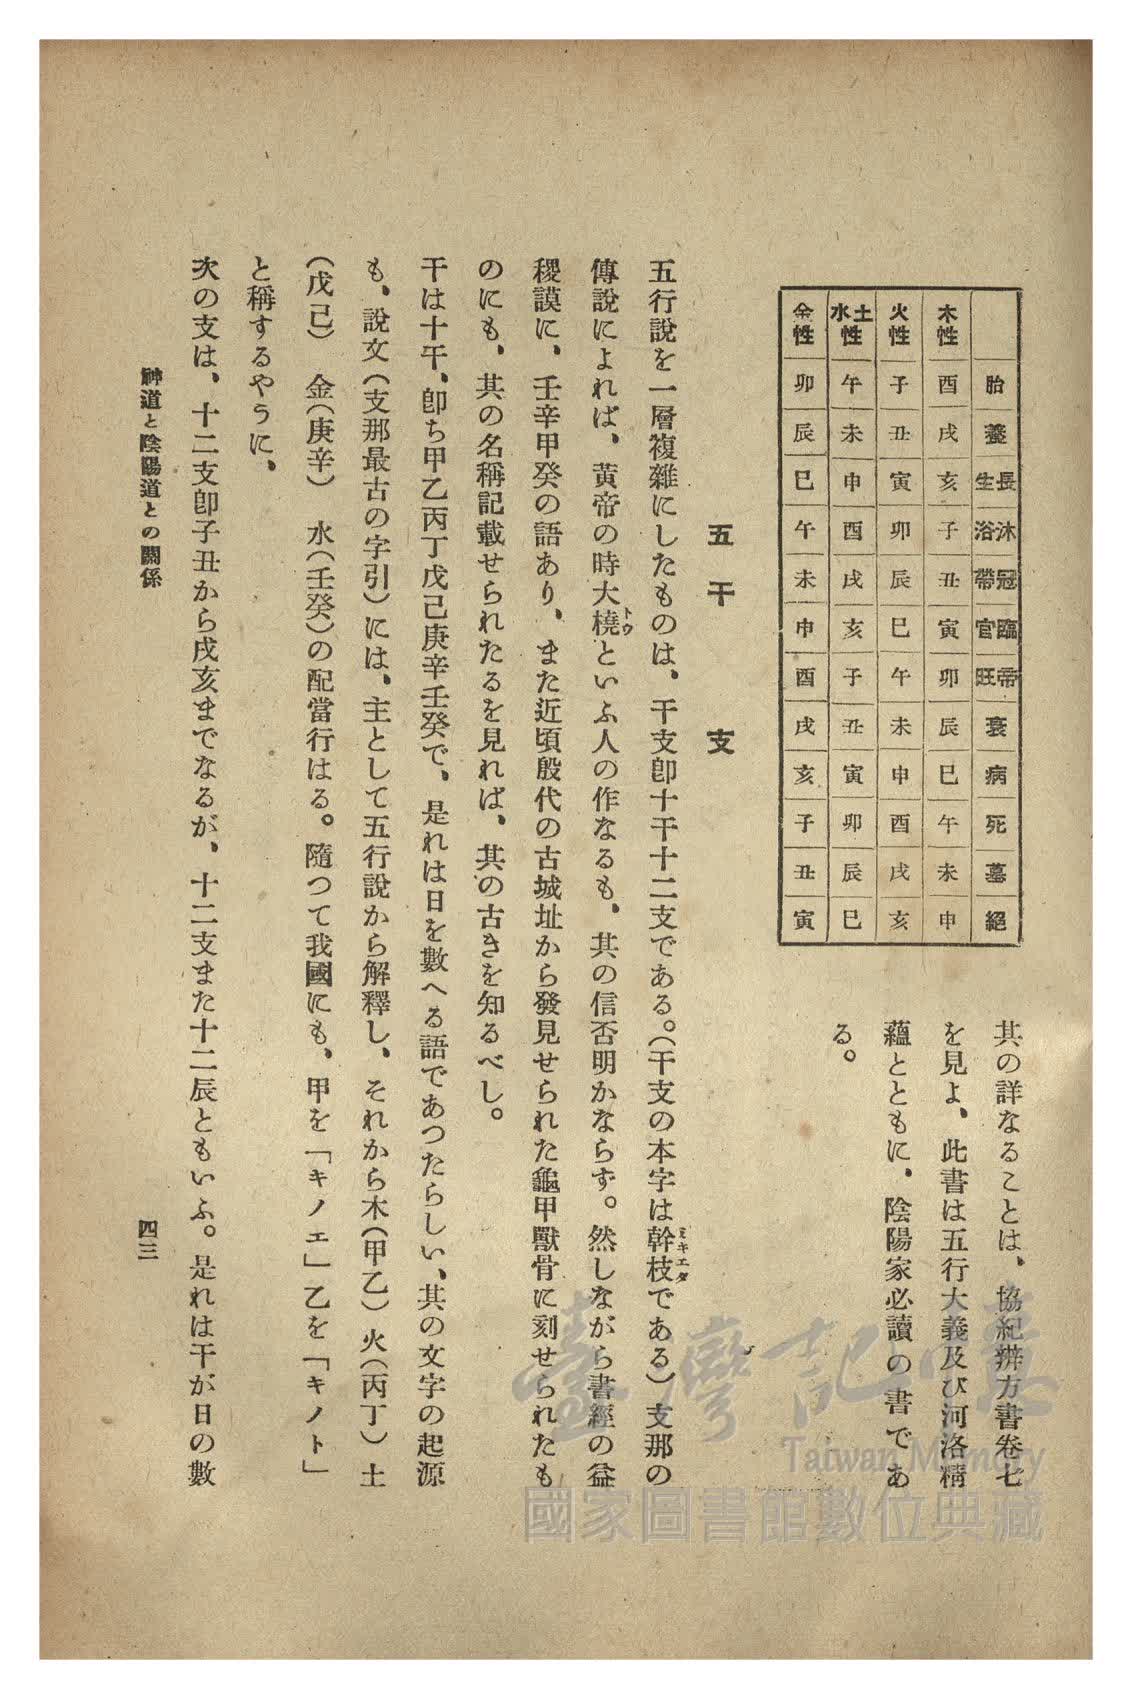 胎 養 長生 沐浴 冠帶 臨官 帝旺 衰 病 死 墓 絕
木性 酉 戌 亥 子 丑 寅 卯 辰 巳 午 未 申
火性 子 丑 寅 卯 辰 巳 午 未 申 酉 戌 亥
土水性 午 未 申 酉 戌 亥 子 丑 寅 卯 辰 巳
金性 卯 辰 巳 午 未 申 酉 戌 亥 子 丑 寅
其の詳なることは、協紀辨方書卷七
を見よ、此書は五行大義及び河洛精
蘊とともに、陰陽家必讀の書であ
る。
五 干 支
五行說を一層複雜にしたものは、干支卽十干十二支である。（干支の本字は幹枝ミキエダである）支那の
傳說によれば、黃帝の時大橈トウといふ人の作なるも、其の信否明かならず。然しながら書經の益
稷謨に、壬辛甲癸の語あり、また近頃殷代の古城址から發見せられた龜甲獸骨に刻せられたも
のにも、其の名稱記載せられたるを見れば、其の古きを知るべし。
干は十干、卽ち甲乙丙丁戊己庚辛壬癸で、是れは日を數へる語であつたらしい、其の文字の起源
も、說文（支那最古の字引）には、主として五行說から解釋し、それから木（甲乙）火（丙丁）土
（戊己） 金（庚辛） 水（壬癸）の配當行はる。隨つて我國にも、甲を「キノエ」乙を「キノト」
と稱するやうに、
次の支は、十二支卽子丑から戌亥までなるが、十二支また十二辰ともいふ。是れは干が日の數
神道と陰陽道との關係
四三
臺灣記憶
Taiwan Memory
國家圖書館數位典藏